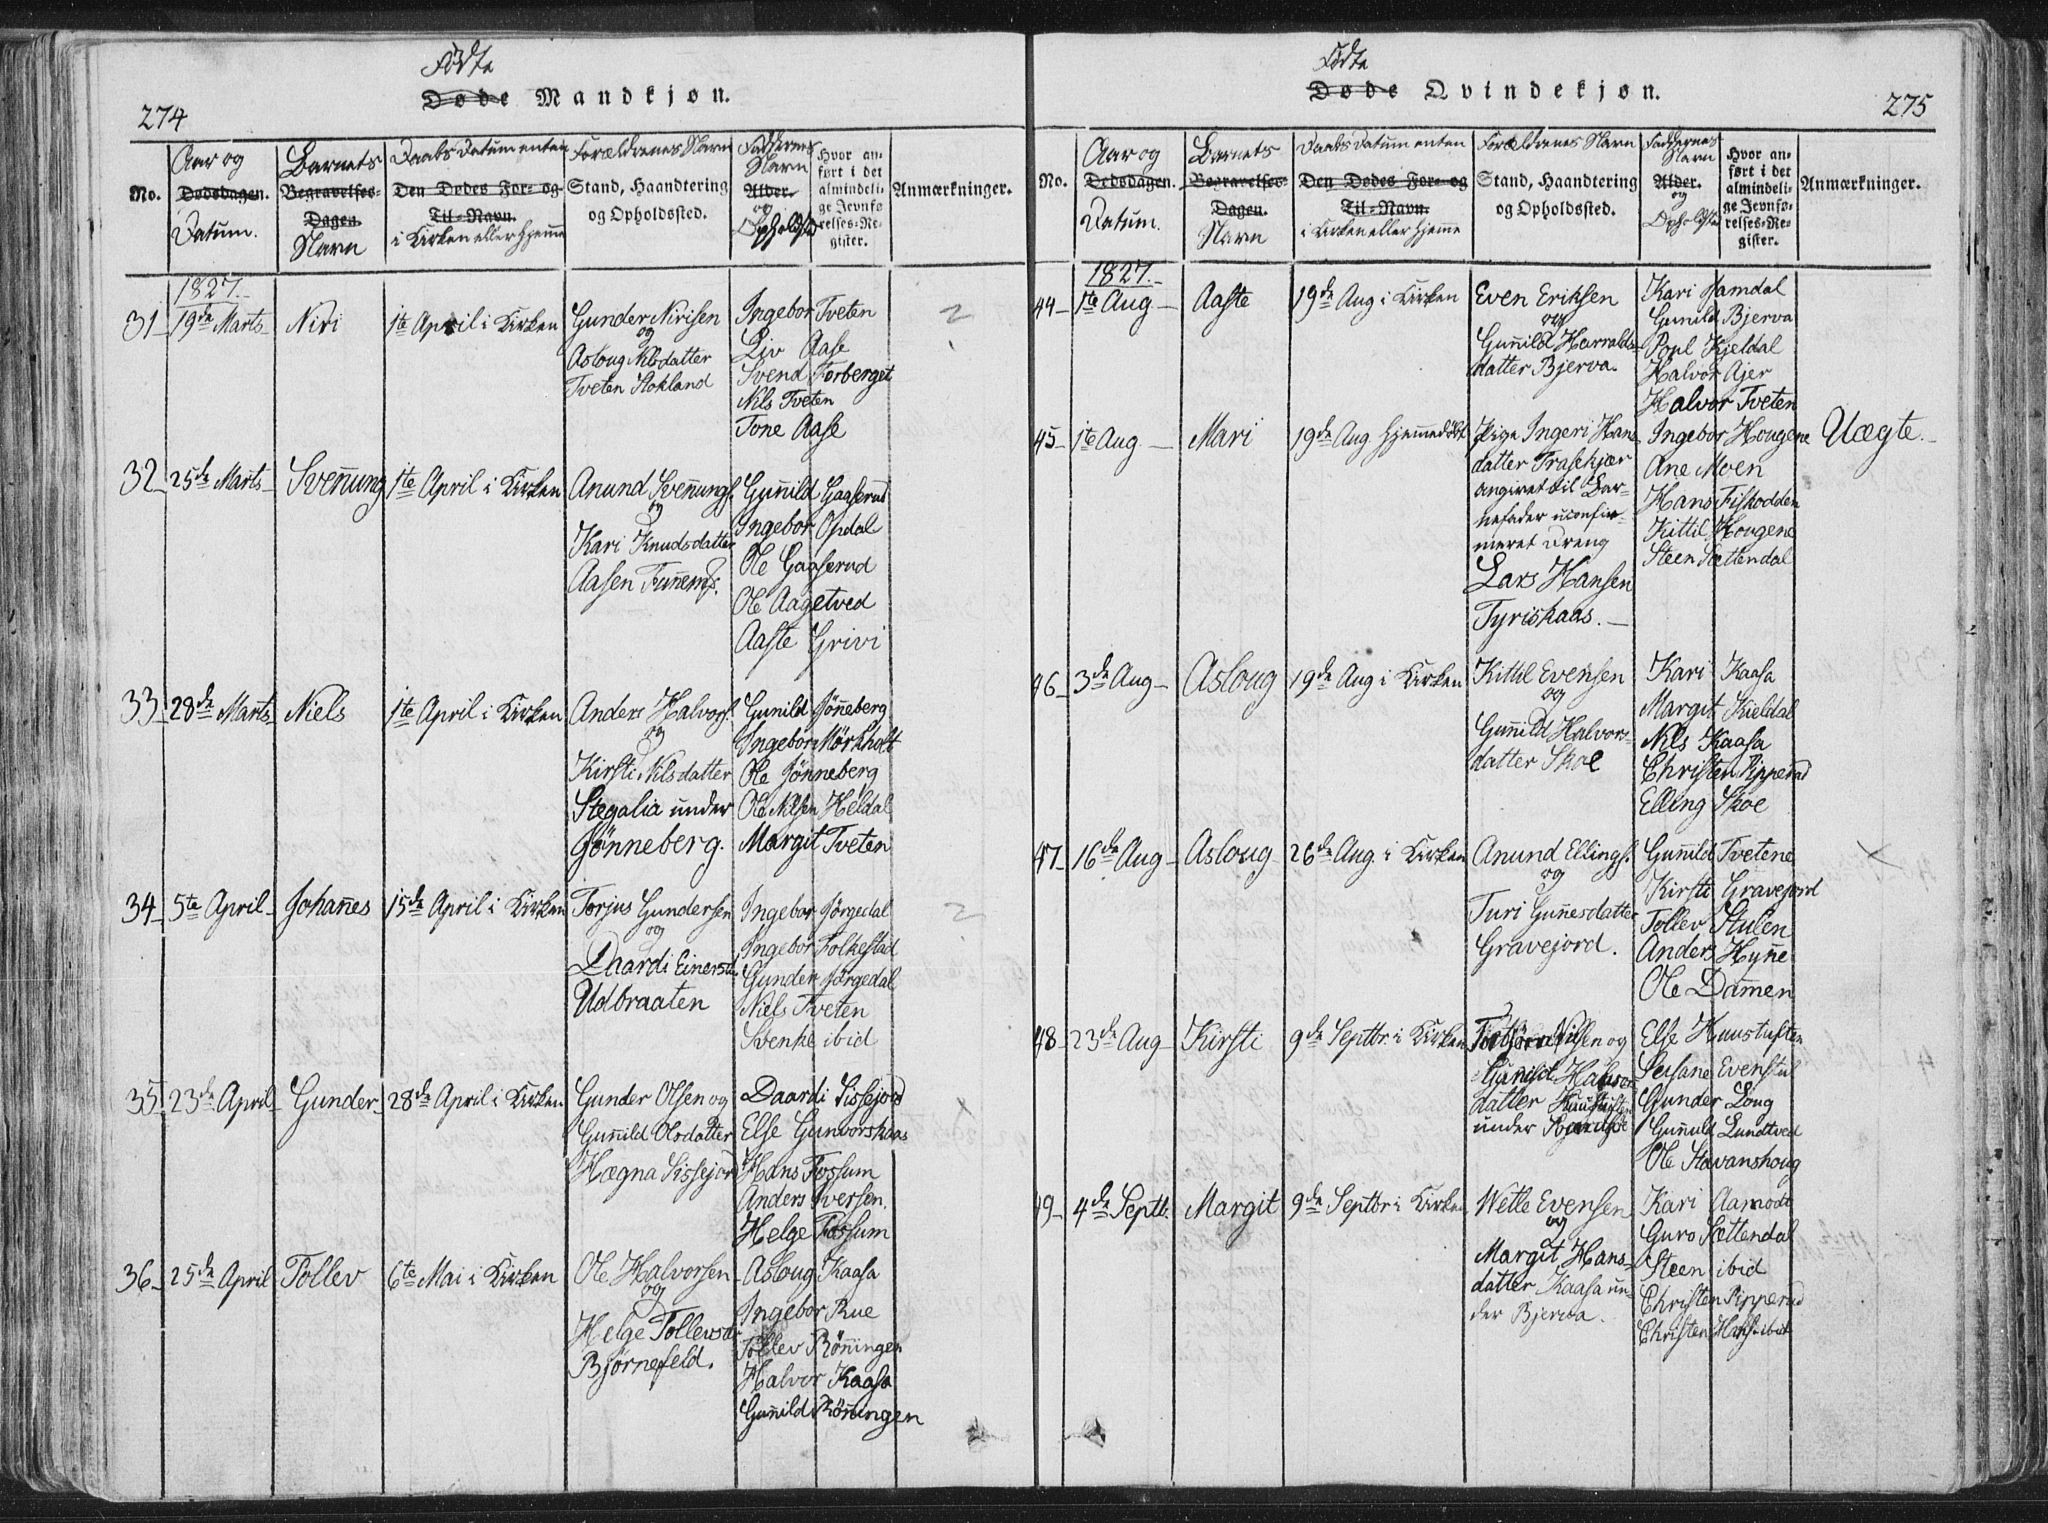 274
Fødte
Døde Mandkjøn.
No.
Aar og
Dødsdagen.
Datum.
Barnets
Begravelses-
Dagen.
Navn
Daabs Datum enten
Den Dødes For- og
Til-Navn.
i Kirken eller Hjemme
Forældrenes Navn
Stand, Haandtering
og Opholdssted.
Faddernes
Navn
Alder.
og
Opholdsted
Hvor an-
ført i det
almindeli-
ge Jevnfø-
relses-Re-
gister.
Anmærkninger.
1827.
31 19de Marts Niri 1te April i Kirken
Gunder Nirisen
og
Asloug Nilsdatter
Tveten Stokland
Ingebor Tveten
Liv Aase
Svend Forberget
Nils Tveten
Tone Aase
2
32 25de Marts Svenung 1te April i Kirken
Anund Svenungs.
og
Kari Knudsdatter
Aasen
Gunild Gaaserud
Ingebor Opdal
Ole Gaaserud
Ole Aagetved
Aaste Grivi
33 28de Marts Niels 1te April i Kirken
Anders Halvors.
og
Kirsti Nilsdatter
Stegalia under
Jønneberg.
Gunild Jønneberg
Ingebor Mørkholt
Ole Jønneberg
Ole Nilsen Heldal
Margit Tveten
34 5te April Johannes 15de April i Kirken
Torjus Gundersen
og
Daardi Einersd.
Udbraaten
Ingebor Jørgedal
Ingebor Folkestad
Gunder Jørgedal
Niels Tveten
Svenke ibid
2
35 23de April Gunder 28de April i Kirken
Gunder Olsen og
Gunild Olsdatter
Hægna Sissejord
Daardi Sissejord
Else Gunvorskaas
Hans Fossum
Anders Iversen.
Helge Fossum
36 25de April Tollev 6te Mai i Kirken
Ole Halvorsen
og
Helge Tollevsdr
Bjørnefeld.
Asloug Kaasa
Ingebor Rue
Tollev Rönningen
Halvor Kaasa
Gunild Rönningen
275
Fødte
Døde Qvindekjøn.
No.
Aar og
Dødsdagen.
Datum.
Barnets
Begravelses-
Dagen.
Navn
Daabs Datum enten
Den Dødes For- og
Til-Navn.
i Kirken eller Hjemme
Forældrenes Navn
Stand, Haandtering
og Opholdssted.
Faddernes
Navn
Alder.
og
Opholdsted
Hvor an-
ført i det
almindeli-
ge Jevnfø-
relses-Re-
gister.
Anmærkninger.
1827.
44 1te Aug Aaste 19de Aug i Kirken
Even Eriksen
og
Gunild Harralds-
datter Bjerva.
Kari Hamdal
Gunild Bjerva
Poul Kjeldal
Halvor Ajer
Halvor Tveten
45 1te Aug Mari 19de Aug Hjemmedöbt
Pige Ingeri Hans-
datter Traskjær
angivet til Bar-
nefader uconfir-
meret Dreng
Lars Hansen
Tyriskaas.
Ingebor Hougene
Ane Moen
Hans Fiskodden
Kittil Hougene
Steen Sættendal
Uægte.
46 3de Aug Asloug 19de Aug i Kirken
Kittil Evensen
og
Gunild Halvors-
datter Skoe
Kari Kaasa
Margit Kieldal
Nils Kaasa
Christen Pipperud
Elling Skoe
47 16de Aug Asloug 26de Aug i Kirken
Anund Ellings.
og
Turi Gunnesdatter
Gravejord.
Gunild Tvetene
Kirsti Gravejord
Tollev Stulen
Anders Hynne
Ole Dammen
48 23de Aug Kirsti 9de Septbr. i Kirken
Torbjørn Nilsen og
Gunild Halvors-
datter
under
Else Huustuften
Evenstul
Gunder Loug
Gunuld Lundtved
Ole Stavanshoug
49 4de Septb. Margit 9de Septbr i Kirken
Wetle Evensen
og
Margit Hans-
datter Kaasa un-
der Bjerva.
Kari Aamodt
Guro Sættendal
Steen ibid
Christen Pipperud
Christen Hans. ibid